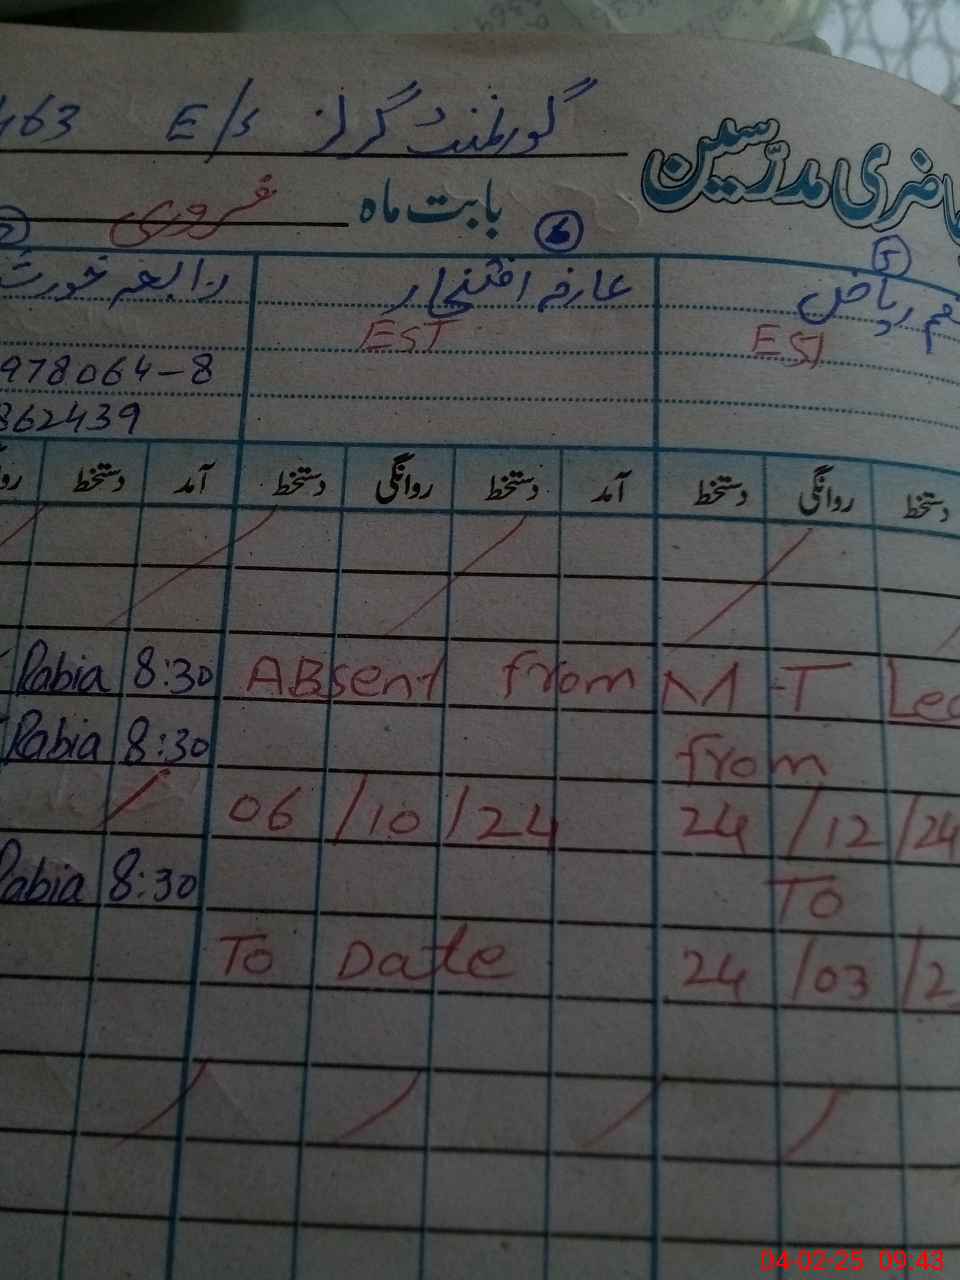 حاضری مدرسین گورنمنٹ گرلز E/S 463
بابت ماہ فروری
5 6
ریاض عارفہ افتخار رابعہ
EST EST
978064-8
862439
دستخط روانگی دستخط آمد دستخط روانگی دستخط آمد دستخط
Rabia 8:30 ABsent from M-T
Rabia 8:30 from
06/10/24 24/12/24
Rabia 8:30 TO
To Date 24/03/2
04-02-25 09:43